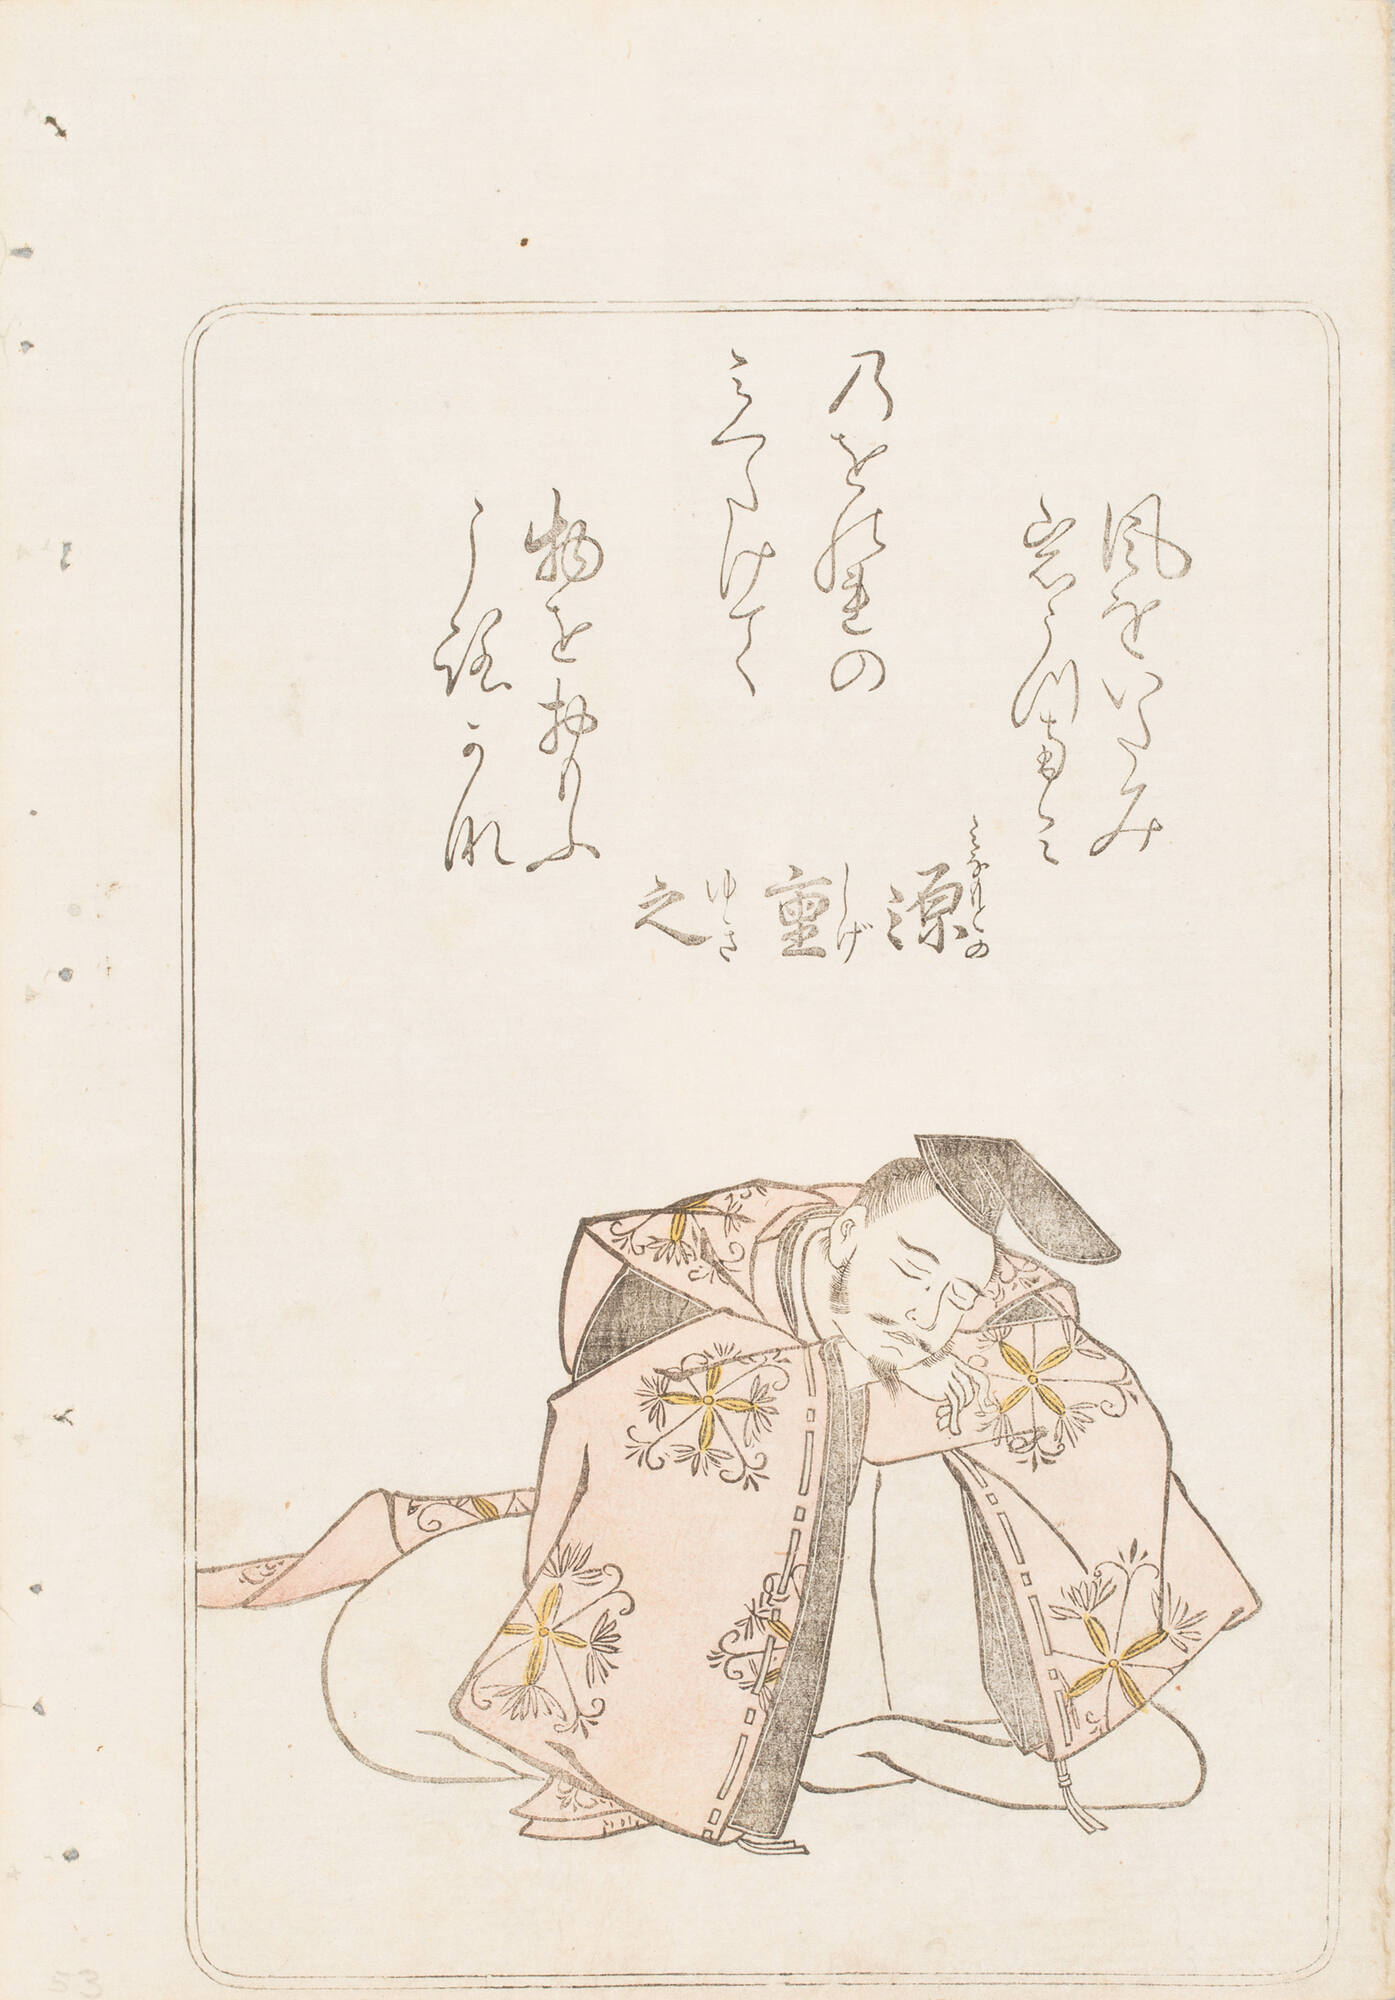 風をいたみ
岩うつ浪の
みなもとの
源
しげ
重
ゆき
之
乃をのれの
みくたけて
物をおもふ
ころかな
53